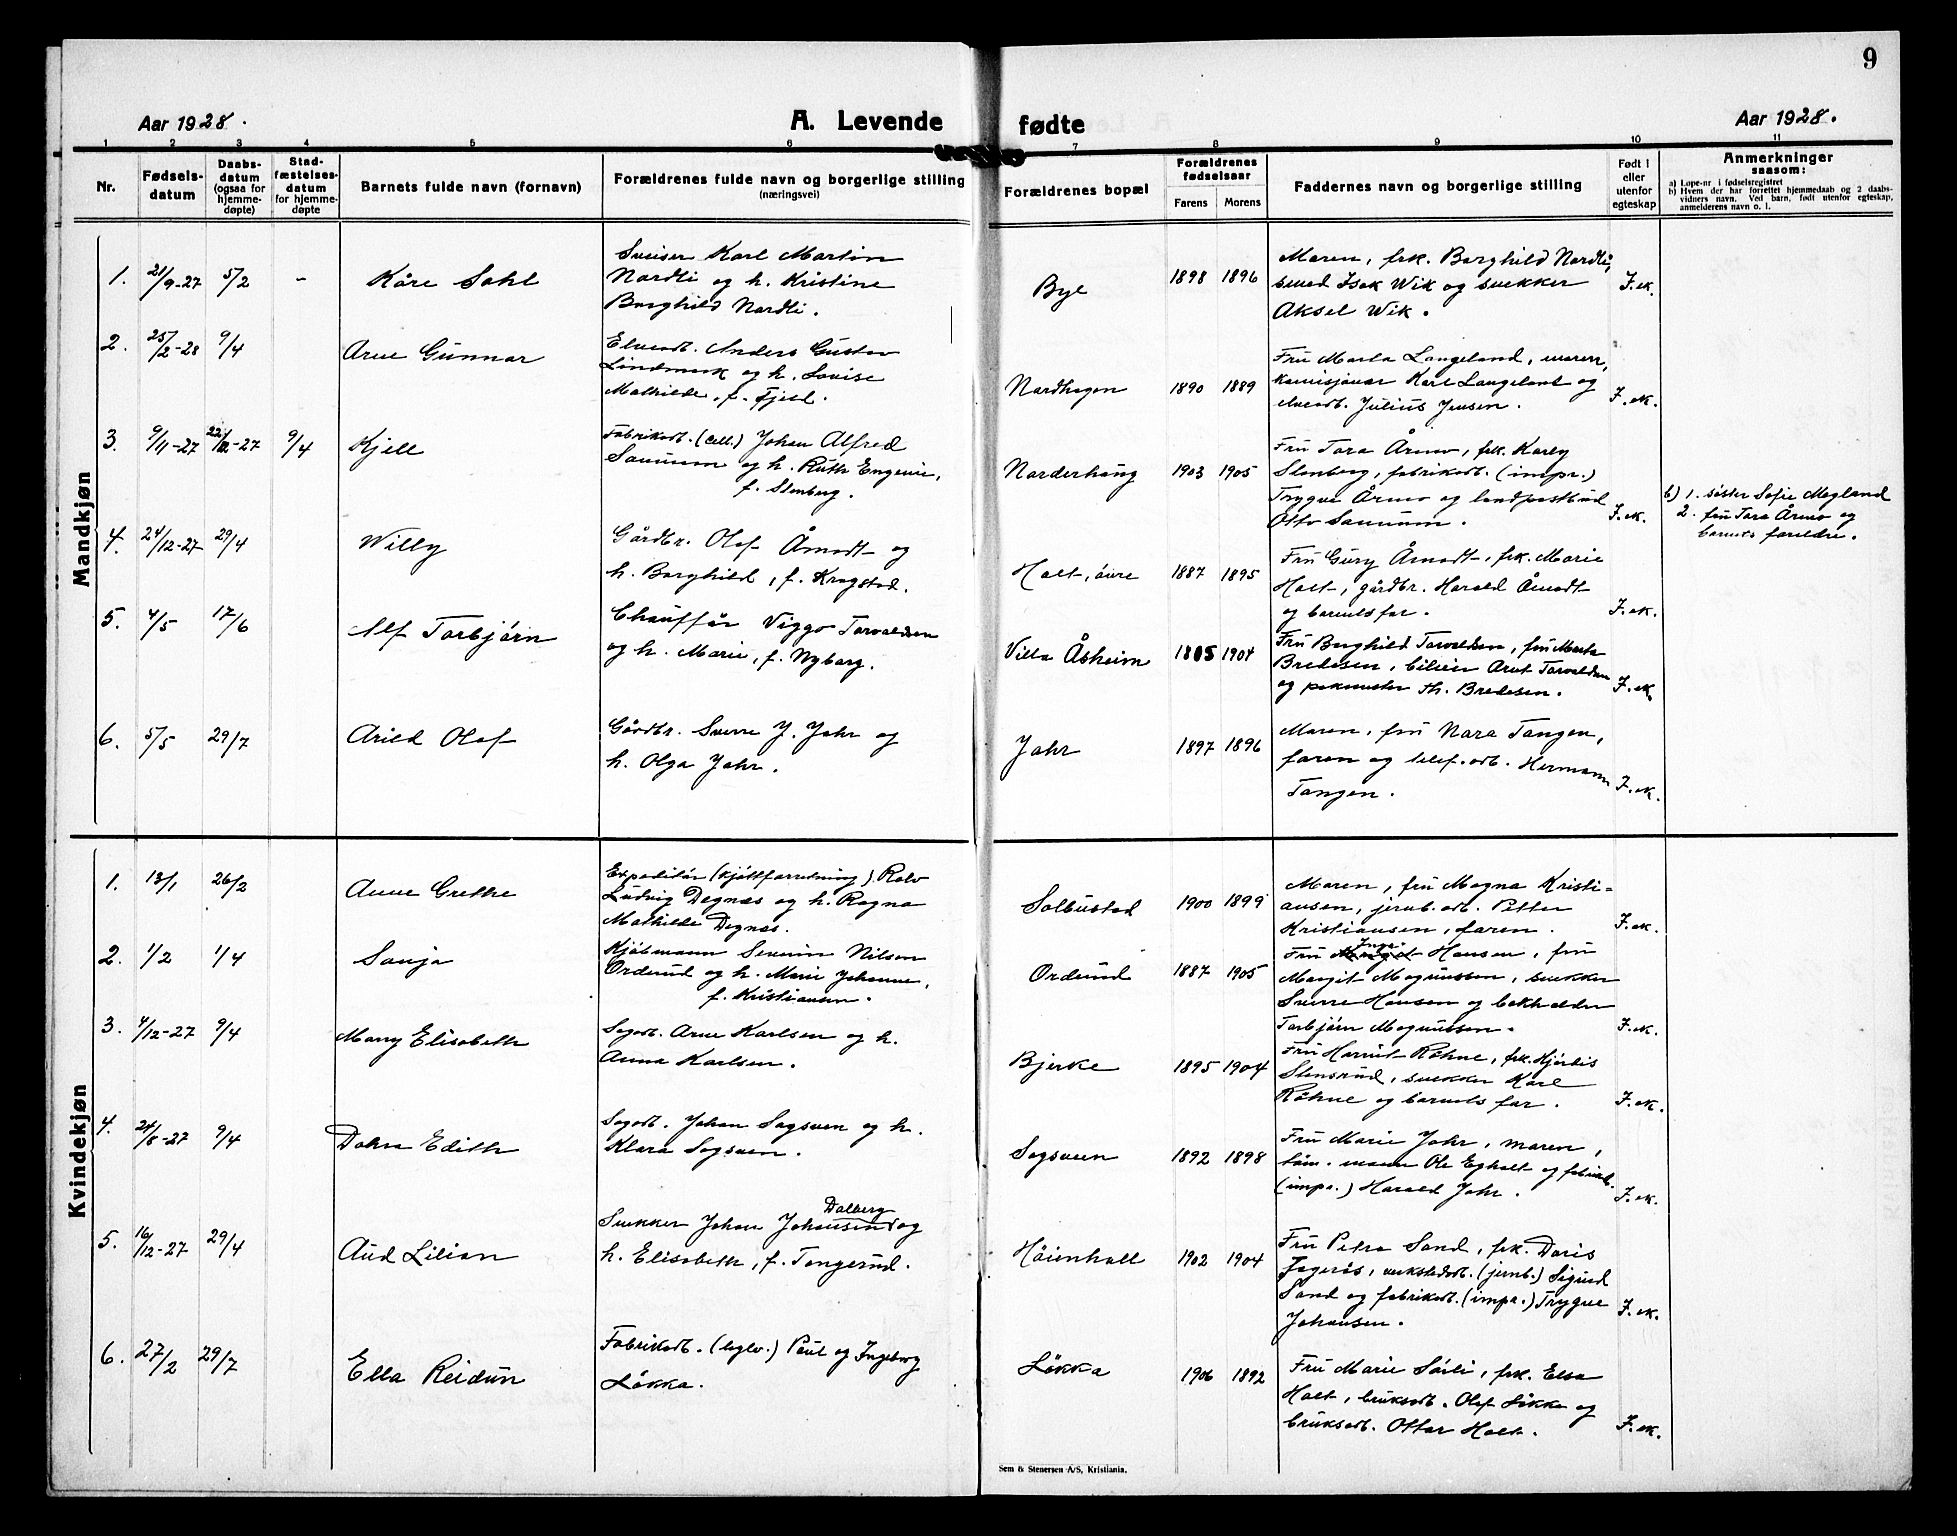 9
Aar 1928.
A. Levende fødte
Aar 1928.
1 2 3 4 5 6 7 8 9 10 11
Nr.
Fødsels-
datum
Daabs-
datum
(ogsaa for
hjemme-
døpte)
Stad-
fæstelses-
datum
for hjemme-
døpte
Barnets fulde navn (fornavn)
Forældrenes fulde navn og borgerlige stilling
(næringsvei)
Forældrenes bopæl
Forældrenes
fødselsaar
Farens
Morens
Faddernes navn og borgerlige stilling
Født i
eller
utenfor
egteskap
Anmerkninger
saasom:
a) Løpe-nr i fødselsregistret
b) Hvem der har forrettet hjemmedaab og 2 daabs-
vidners navn. Ved barn, født utenfor egteskap,
anmelderens navn o. l.
Mandkjøn
1. 21/9-27 5/2 - Kåre Sahl
Sveiser Karl Martin
Nordli og h. Kristine
Borghild Nordli.
Bye 1898 1896
Moren, frk. Borghild Nordli,
smed Isak Wik og snekker
Aksel Wik.
I. ek.
2. 25/2-28 9/4 Arne Gunnar
Elvearb. Anders Gustav
Lindmark og h. Lovise
Mathilde, f. Fjeld.
Nordhagen 1890 1889
Fru Marta Langeland, moren,
kommisjonær Karl Langeland og
elvearb. Julius Jensen.
I. ek.
3. 9/11-27 22/12-27 9/4 Kjell
Fabrikarb. (cell.) Johan Alfred
Samuum og h. Ruth Engenie,
f. Stenberg.
Norderhaug 1903 1905
Fru Tora Årmo, frk. Karly
Stenberg, fabrikarb. (impr.)
Trygve Årmo og landpostbud
Otto
I. ek.
b) 1. søster Sofie Mogland
2. fru Tora Årmo og
barnets foreldre.
4. 24/12-27 29/4 Willy
Gårdbr. Olaf Åmodt og
h. Borghild, f. Krogstad.
Holt, øvre 1887 1895
Fru Gury Åmodt, frk. Marie
Holt, gårdbr. Harald Åmodt
og barnets far.
I. ek.
5. 4/5 17/6 Alf Torbjørn
Chauffør Viggo Torvaldsen
og h. Marie, f. Nyborg.
Villa Åsheim 1905 1904
Fru Borghild Torvaldsen, fru Marta
Bredesen, bileier Arnt Torvaldsen
og pakmester Th. Bredesen.
I. ek.
6. 5/5 29/7 Arild Olaf
Gårdbr. Sverre J. Jahr og
h. Olga Jahr.
Jahr 1897 1896
Moren, fru Nora Tangen,
faren og telef.arb. Hermann
Tangen.
I. ek.
Kvindekjøn
1. 13/1 26/2 Anne Grethe
Expeditør (kjøttforretning) Rolv
Ludvig Degnæs og h. Ragna
Mathilde Degnæs.
Solbustad 1900 1899
Moren, fru Magna Kristi-
ansen, jernb.arb. Petter
Kristiansen, faren.
I. ek.
2. 1/2 1/4 Sonja
Kjøbmann Severin Nilsen
Orderud og h. Marie Johanne,
f. Kristiansen.
Orderud 1887 1905
Inga
Fru Hansen, fru
Margit Magnussen, snekker
Sverre Hansen og bokholder
Torbjørn Magnussen.
I. ek.
3. 4/12-27 9/4 Mary Elisabeth
Sagarb. Arne Karlsen og h.
Anna Karlsen.
Bjerke 1895 1904
Fru Harriet Røhne, frk. Hjørdis
Stensrud, snekker Karl
Røhne og barnets far.
I. ek.
4. 24/8-27 9/4 Dahra Edith
Sagarb. Johan Sagsveen og h.
Klara Sagsveen.
Sagsveen 1892 1898
Fru Marie Jahr, moren,
tøm.mann Ole Egholt og fabrikarb.
(impr.) Harald Jahr.
I. ek.
5. 16/12-27 29/4 Aud Lilian
Dalberg
Snekker Johan Johansen og
h. Elisabeth, f. Tangerud.
Høienhall 1902 1904
Fru Petra Sand, frk. Doris
Fagerås, verkstedarb. (jernb.) Sigurd
Sand og fabrikarb. (impr.) Trygve
Johansen.
I. ek.
6. 27/2 29/7 Ella Reidun
Fabrikarb. (teglv.) Paul og Ingeborg
Løkka.
Løkka 1906 1892
Fru Marie Sørli, frk. Elsa
Holt, bruksarb. Olaf Løkka og
bruksarb. Ottar Holt.
I. ek.
Sem & Stenersen A/S, Kristiania.